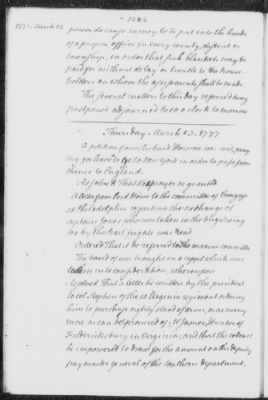 1777. March 12
power do cause money to be put into the hands
of a proper officer in every county, district or
township, in order that such blankets may be
paid for without delay or trouble to the house
holders on whom the assessments shall be made
The several matters to this day referred being
postponed adjourned to 10 o clock to morrow
Thursday, March 13. 1777
A petition from Richard Harrison was read, pray
ing for leave to go to new york in order to pass from
thence to England.
Resolved That his prayer be granted
A letter from Lord Howe to the committee of Congress
at Philadelphia respecting the exchange of
captain Jones who was taken in the brigantine
by the Pearl frigate was read
Ordered That it be referred to the marine committee
The board of war brought in a report which was
taken into consideration, whereupon
Resolved That a letter be written by the president
to col Stephen of the Virginia regiment ordering
him to purchase eighty stand of arms, or as many
more as can be procured of Mr James Hunter of
Fredericksburg in Virginia; and that the colonel
be impowered to draw for the amount on the deputy
pay master general of the southern department.